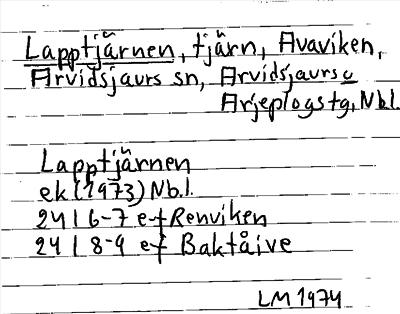 Lapptjärnen, tjärn, Avaviken,
Arvidsjaurs sn, Arvidsjaurs o
Arjeplogs tg, Nbl.
Lapptjärnen
ek (1973) Nb.l.
24 I 6-7 e-f Renviken
24 I 8-9 ef Baktåive
LM 1974